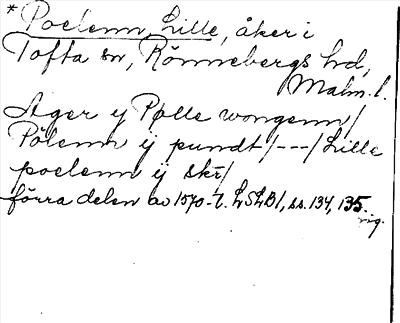 * Poelenn, Lille, åker i
Tofta sn, Rönnebergs hd,
Malm. l.
Ager y Pølle wongenn/
Pölenn ij pundt/---/Lille
poelenn ij skr/
förra delen av 1570-t. LSLB1, ss. 134, 135.